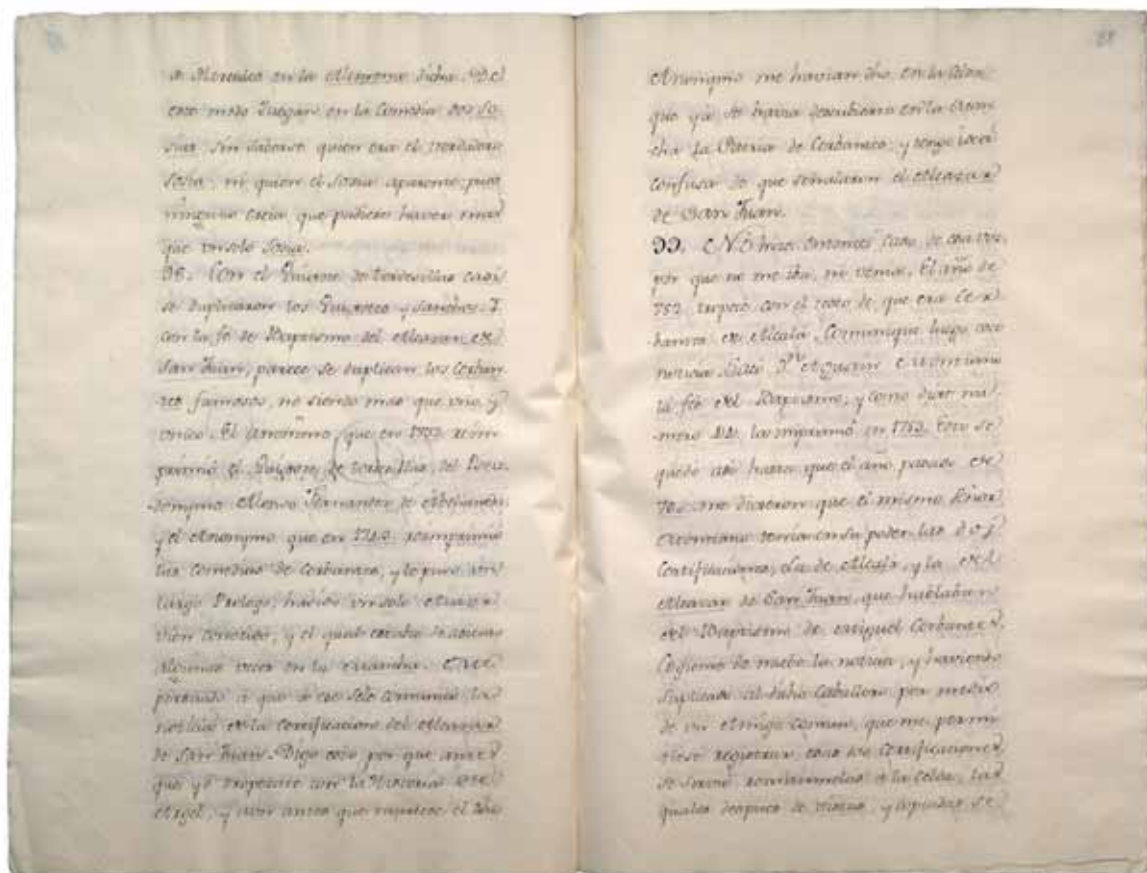 a Mercurio en la Alcmena dicha. De
este modo Juegan en la Comedia dos So-
sias, sin saberse quien era el verdadero
Sosia, ni quien el Sosia aparente; pues
ninguno creia que pudiese haver mas
que un solo Sosia.
98. Con el Quixote de tordesillas casi
se duplicaron los Quixotes y Sanchos. Y
con la fé de Baptismo del Alcazar de
San Juan, parece se duplican los Cerban-
tes famosos, no siendo mas que uno, y
unico. El anonimo, que en 1732 reim-
primió el Quixote de tordesillas, del Pseu-
donymo Alonso Fernandez de Abellaneda
y el Anonymo que en 1749 reimprimió
las Comedias de Cerbantes, y le puso un
largo Prologo, havian un solo
conocido, y el qual estaba de asiento
algunas veces en la
persuado á que á ese solo comunicó la
noticia de la Certificacion del Alcazar
de San Juan. Digo esto, por que antes
que yo tropezase con la Historia de
Argel, y aun antes que muriese el tal
88
Anonymo me havian dho. en la Celda
que ya se havia descubierto en la Man-
cha la Patria de Cerbantes; y tengo idea
confusa de que señalaron el Alcazar
de San Juan.
99. No hice entonces caso, de esa voz
por que no me iba, ni venia. El año de
752 tropecé con el texto de, que era Cer-
bantes de Alcalá. Comuniqué luego esta
noticia. Sacó Dn. Agustin Montiano
la fée del Baptismo, y como dixe nu-
mero la imprimió en 1753. Esto se
quedó asi hasta que el año pasado de
760 me dixeron que el mismo Señor
Montiano tenia en su poder las dos
Certificaciones, La de Alcalá, y la del
Alcazar de San Juan, que hablaban
del Baptismo de Miguel Cerbantes.
de nuebo la noticia, y haviendo
suplicado al dicho Caballero por medio
de un Amigo comun, que me permi-
tiese registrar, esas dos Certificaciones
se sirvió remitirmelas á la Celda, las
quales despues de vistas, y copiadas se